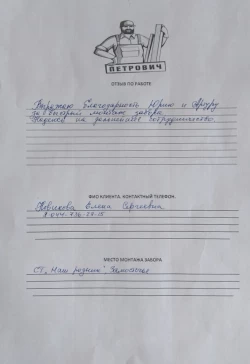 ПЕТРОВИЧ
ОТЗЫВ ПО РАБОТЕ
Выражаю благодарность Юрию и Артуру
за быстрый монтаж забора.
Надеюсь на дальнейшее сотрудничество
ФИО КЛИЕНТА. КОНТАКТНЫЙ ТЕЛЕФОН.
Новикова Елена Сергеевна
МЕСТО МОНТАЖА ЗАБОРА
СТ "Наш родник"